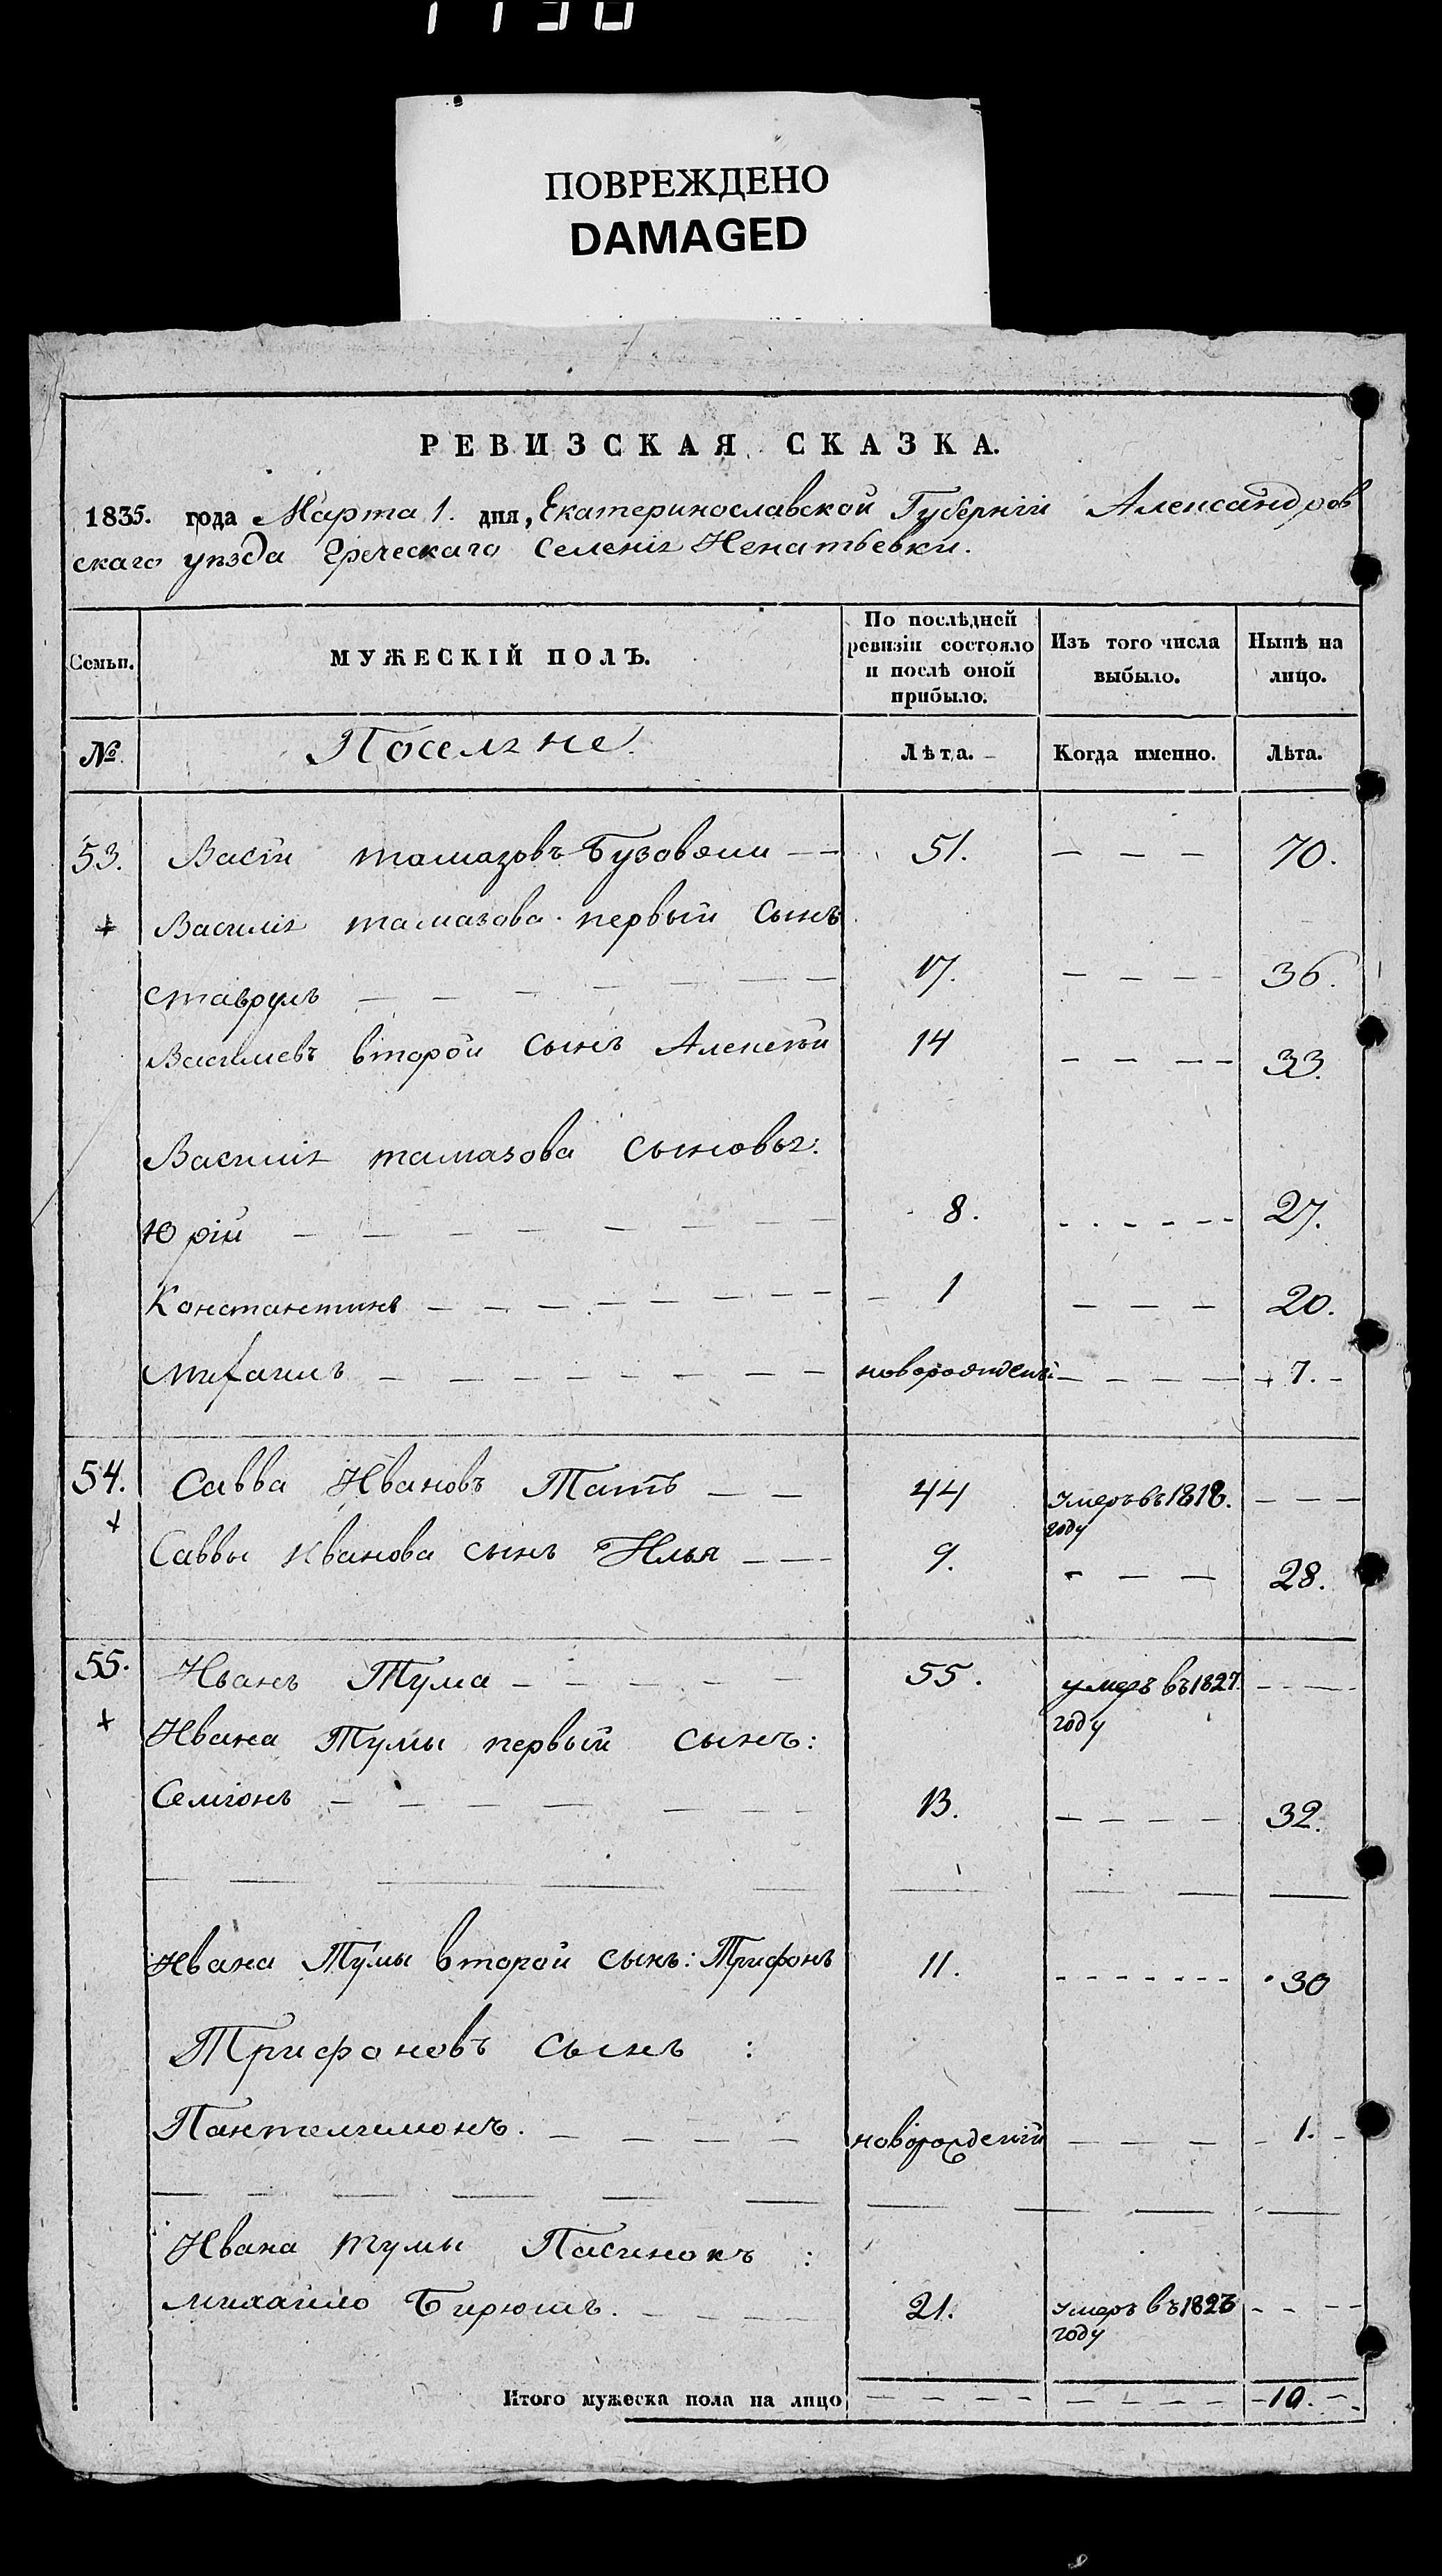 ПОВРЕЖДЕНО
DAMAGED
РЕВИЗСКАЯ СКАЗКА.
1835. года Марта 1. дня, Екатеринославской Губерніи Александров
скаго уѣзда Греческаго Селенія Игнатьевки.
Семьи.
МУЖЕСКІЙ ПОЛЪ.
По послѣдней
ревизіи состояло
и послѣ оной
прибыло.
Изъ того числа
выбыло.
Нынѣ на
лицо.
№
Поселяне
Лѣта.
Когда именно.
Лѣта.
53. Васіи тамазовъ 51. — — — 70.
Василія тамазова первый Сынъ
Ставрулъ 17. — — — 36.
Василіевъ второй Сынъ Алексѣй 14 — — — 33.
Василія тамазова Сыновья:
Юрій 8. 27.
Константинъ 1 20.
Михаилъ новорожденый 7.
54. Савва Ивановъ Татъ 44 умеръ въ 1818.
году
Саввы Иванова сынъ Илья 9. 28.
55. Иванъ Тума 55. умеръ въ 1827.
году
Ивана Тумы первый сынъ:
Семіонъ 13. 32.
Ивана Тумы второй сынъ: Трифонъ 11. 30
Трифоновъ сынъ :
Пантелимонъ. новорожденій 1.
Ивана Тумы Пасинокъ :
михайло Бирюшъ. 21. умеръ въ 1823
году
Итого мужеска пола на лицо 10.